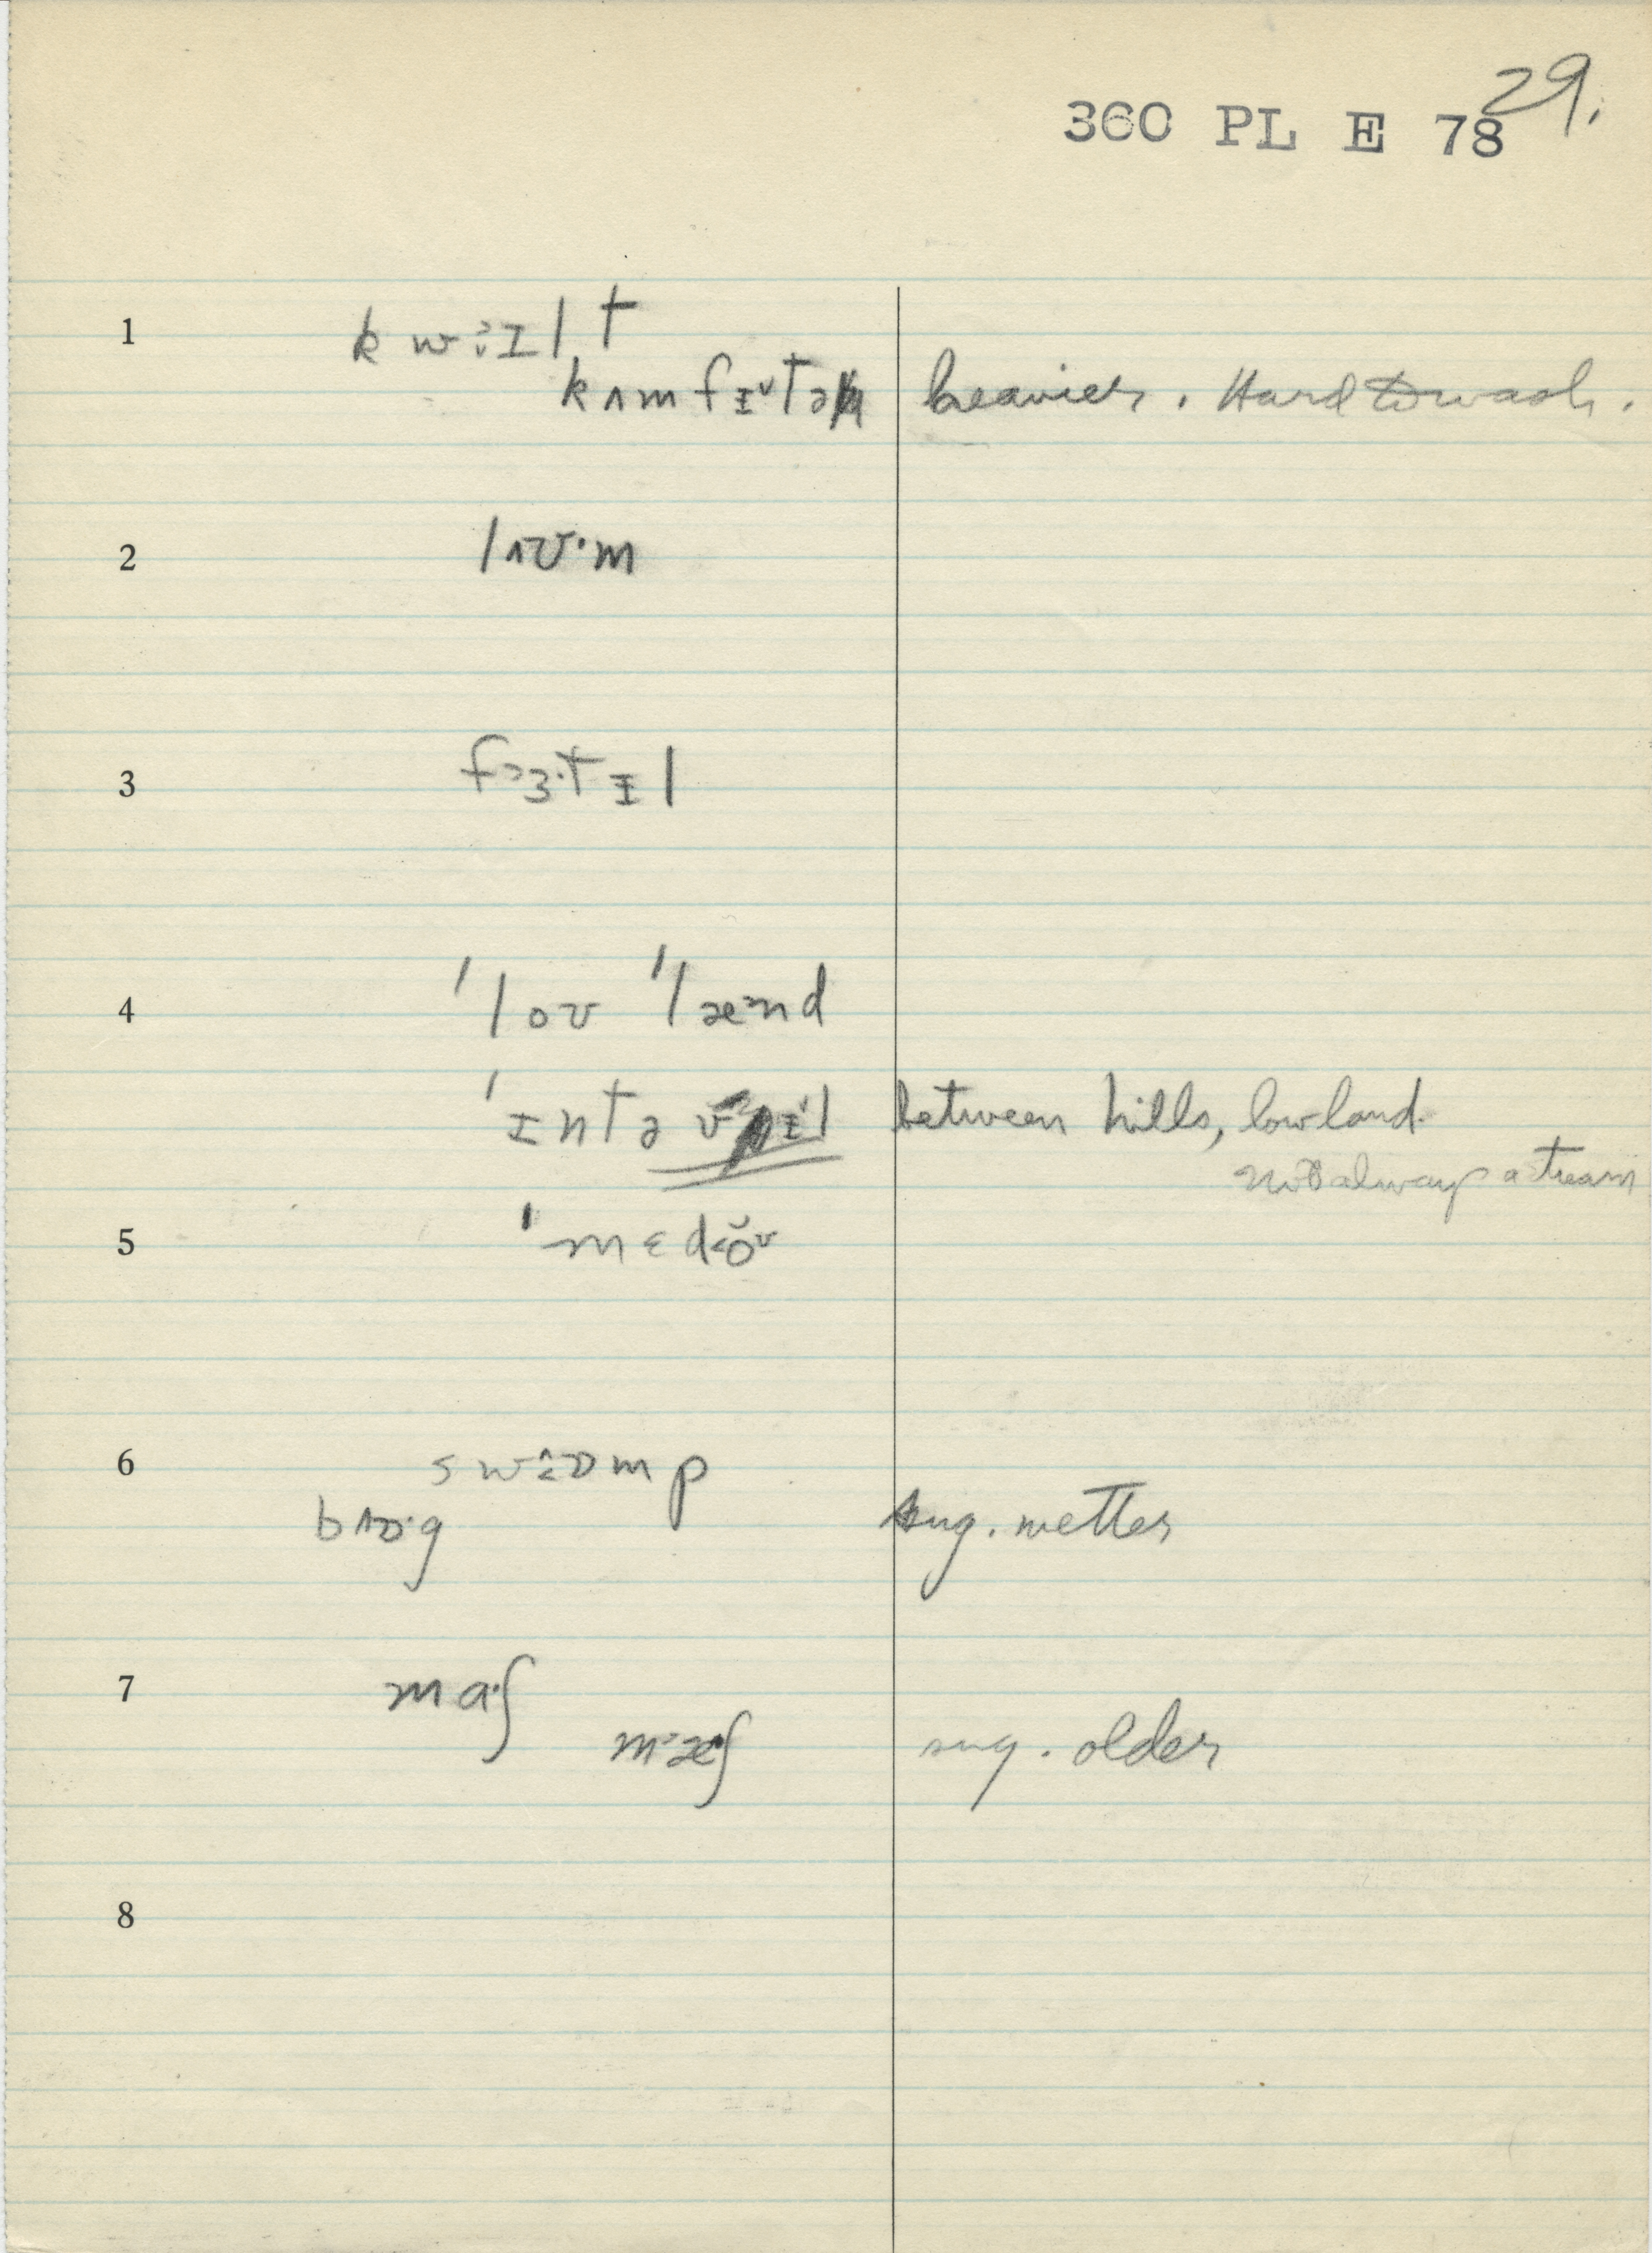 29.
360 PL E 78
1 kwɪlt
kʌmfɪtə heavier. Hard to wash.
2 lʊ·m
3 fɜ·tɪl
4 ˈloʊ ˈlænd
ˈɪntəvɪl between hills, low land.
not always a stream
5 ˈmɛdoʊ
6 swɒmp
bɒ·g sug. wetter
7 ma·ʃ
mæ·ʃ sug. older
8